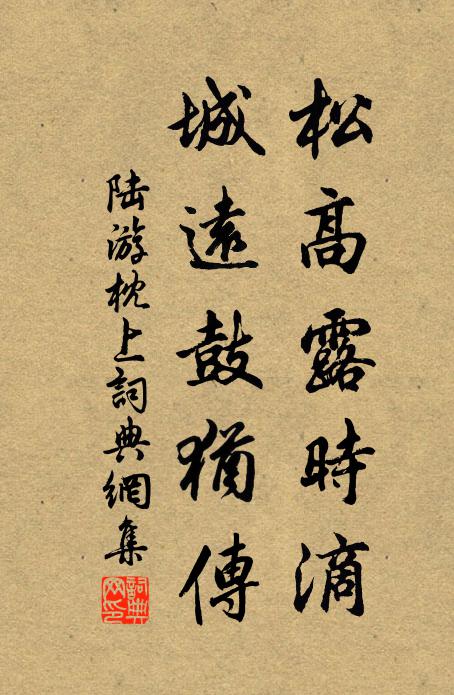 松高露時滴
城遠鼓猶傳
陆游枕上詞典網集
詞典网印